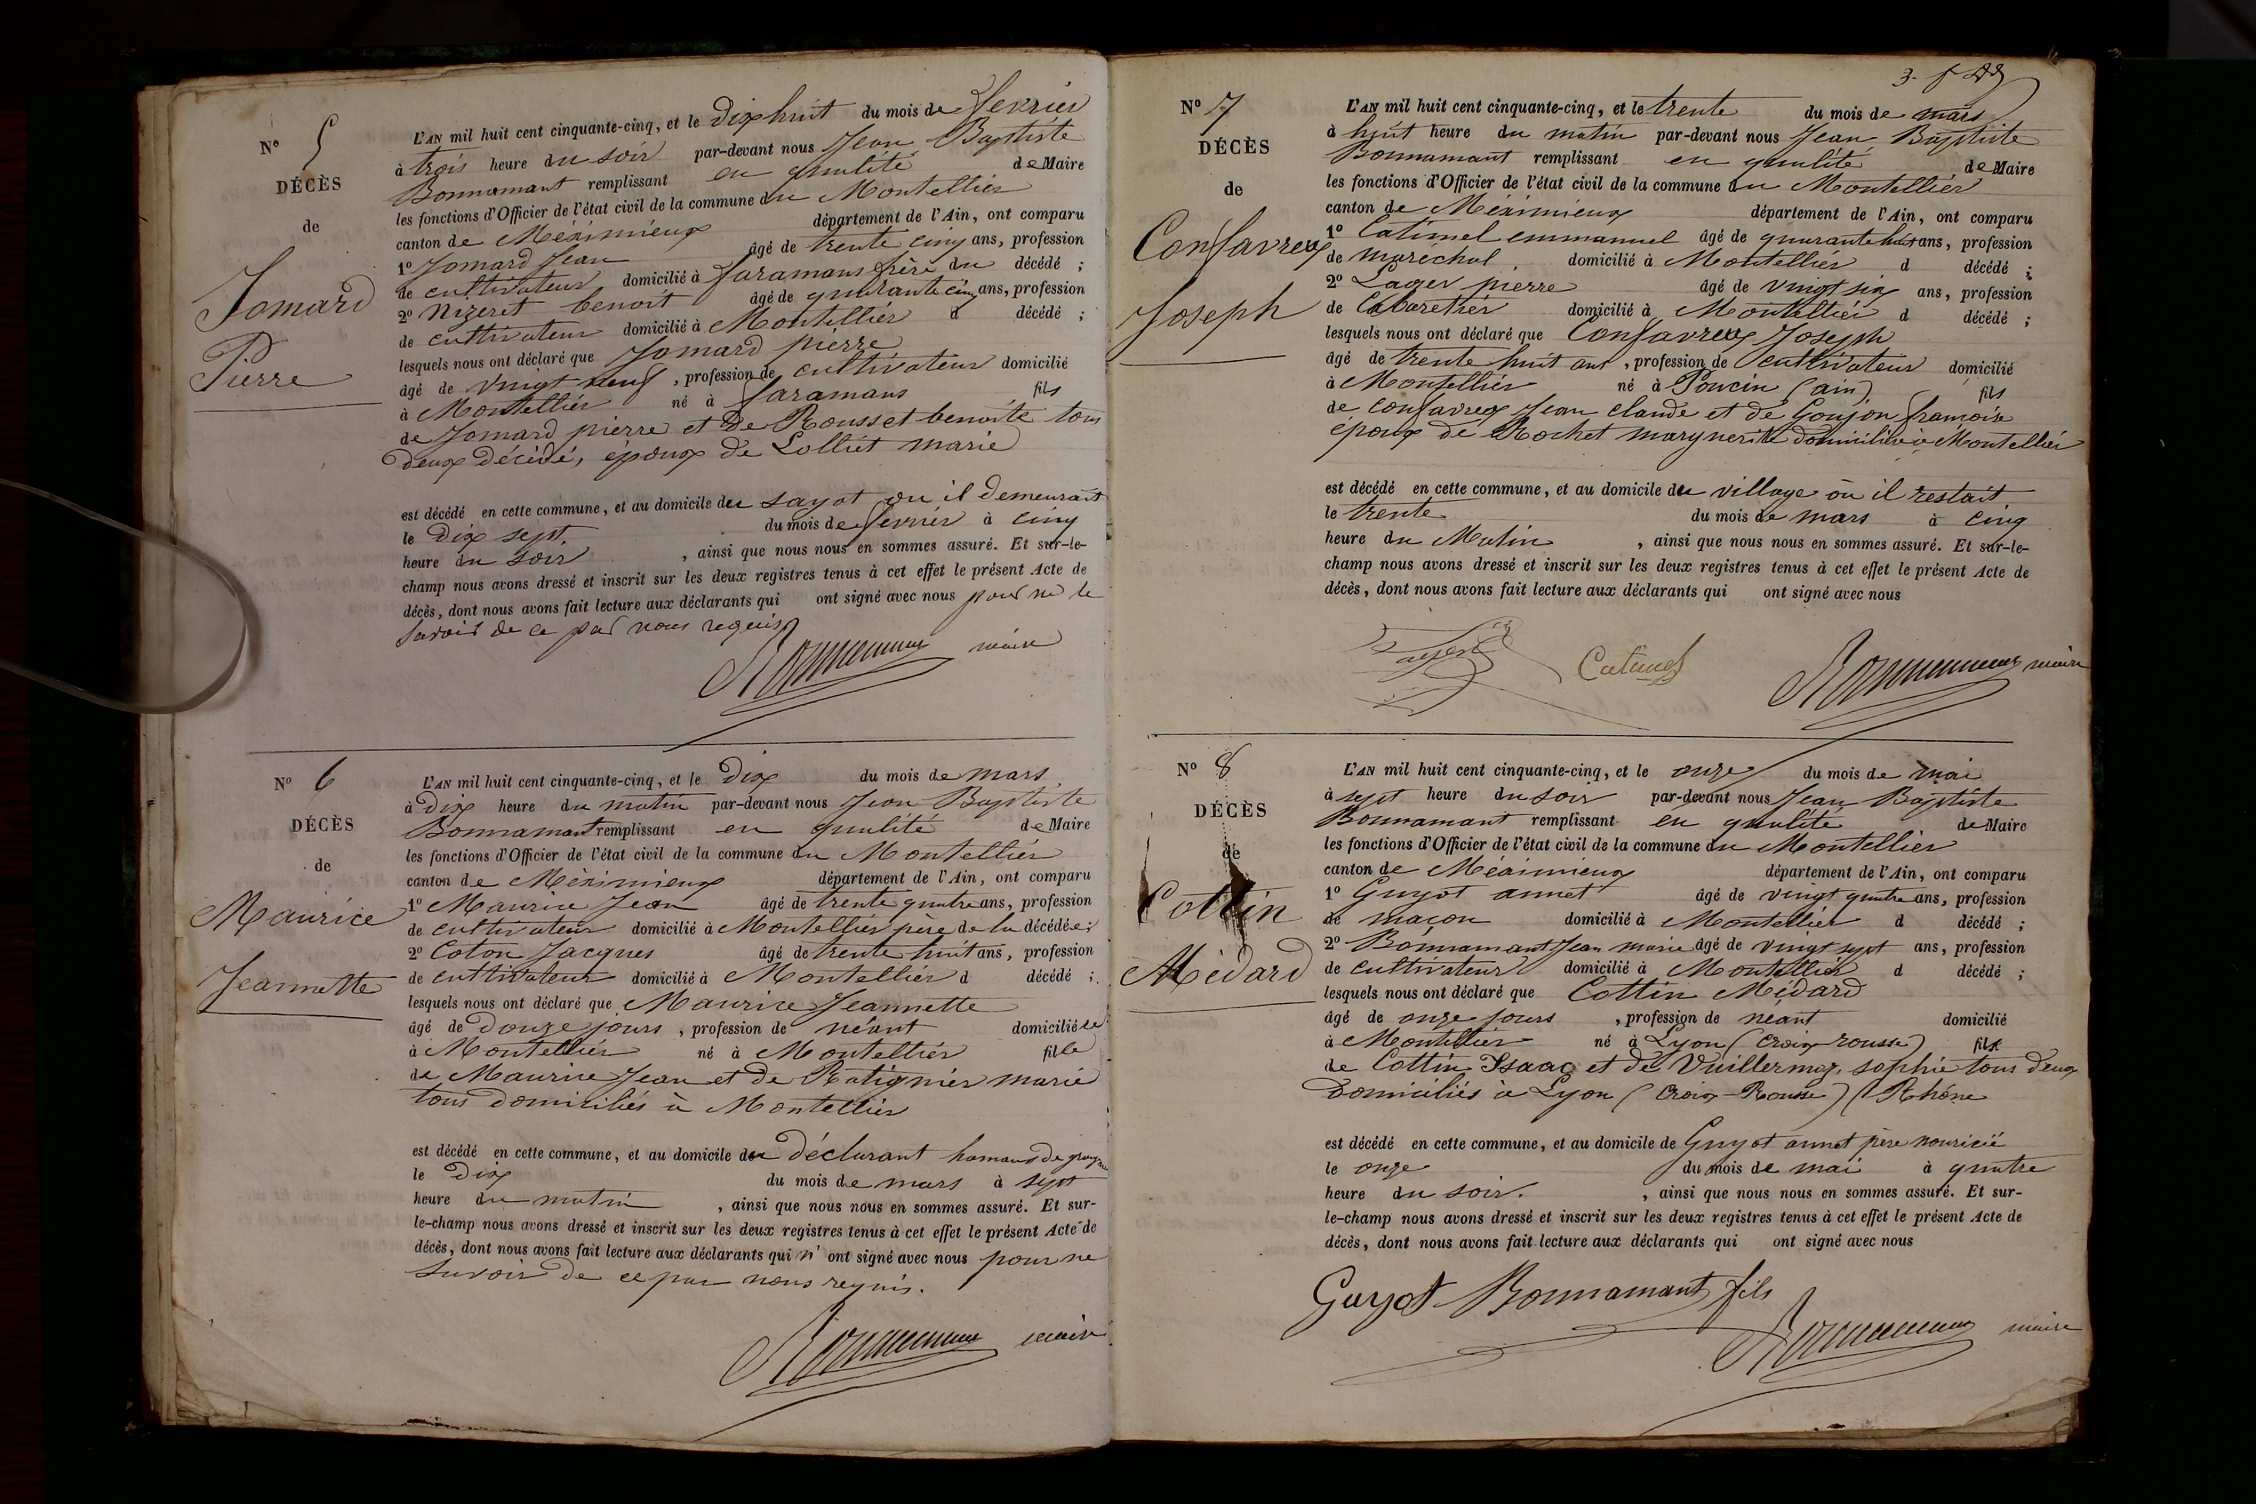 Nº 5
DÉCÈS
de
Jomard
Pierre
L'AN mil huit cent cinquante-cinq, et le dix huit du mois de fevrier
à trois heure du soir par-devant nous Jean Baptiste
Bonnamant remplissant en qualité de Maire
les fonctions d'Officier de l'état civil de la commune du Montellier
canton de Méximieux département de l'Ain, ont comparu
1º Jomard Jean âgé de trente cinq ans, profession
de cultivateur domicilié à faramans frère du décédé ;
2º Nizeret benoit âgé de quarante cinq ans, profession
de cultivateur domicilié à Montellier d décédé ;
lesquels nous ont déclaré que Jomard pierre
âgé de vingt neuf , profession de cultivateur domicilié
à Montellier né à faramans fils
de Jomard pierre et de Rousset benoite tous
deux décédé, époux de Lolliet marie
est décédé en cette commune, et au domicile du sayot ou il demeurait
le dix sept du mois de fevrier à cinq
heure du soir , ainsi que nous nous en sommes assuré. Et sur-le-
champ nous avons dressé et inscrit sur les deux registres tenus à cet effet le présent Acte de
décès, dont nous avons fait lecture aux déclarants qui ont signé avec nous pour ne le
savoir de ce par nous requis
Bonnamant maire
Nº 6
DÉCÈS
de
Maurice
Jeannette
L'AN mil huit cent cinquante-cinq, et le dix du mois de mars
à dix heure du matin par-devant nous Jean Baptiste
Bonnamant remplissant en qualité de Maire
les fonctions d'Officier de l'état civil de la commune du Montellier
canton de Méximieux département de l'Ain, ont comparu
1º Maurice Jean âgé de trente quatre ans, profession
de cultivateur domicilié à Montellier père de la décédée ;
2º Coton Jacques âgé de trente huit ans, profession
de cultivateur domicilié à Montellier d décédé ;
lesquels nous ont déclaré que Maurice Jeannette
âgé de douze jours , profession de néant domiciliée
à Montellier né à Montellier fille
de Maurice Jean et de Ratignier marie
tous domiciliés à Montellier
est décédé en cette commune, et au domicile du déclarant hamaus de
le dix du mois de mars à sept
heure du matin , ainsi que nous nous en sommes assuré. Et sur-
le-champ nous avons dressé et inscrit sur les deux registres tenus à cet effet le présent Acte de
décès, dont nous avons fait lecture aux déclarants qui n' ont signé avec nous pour ne
savoir de ce par nous requis.
Bonnamant maire
Nº 7
DÉCÈS
de
Confavreux
Joseph
L'AN mil huit cent cinquante-cinq, et le trente du mois de mars
à huit heure du matin par-devant nous Jean Baptiste
Bonnamant remplissant en qualité de Maire
les fonctions d'Officier de l'état civil de la commune du Montellier
canton de Méximieux département de l'Ain, ont comparu
1º Catimel emmanuel âgé de quarante huit ans, profession
de maréchal domicilié à Montellier d décédé ;
2º Lager pierre âgé de vingt six ans, profession
de Cabaretier domicilié à Montellier d décédé ;
lesquels nous ont déclaré que Confavreux Joseph
âgé de trente huit ans , profession de cultivateur domicilié
à Montellier né à Poncin (ain) fils
de confavreux Jean claude et de Goujon françoise
époux de Rochet marguerite domiciliée à Montellier
est décédé en cette commune, et au domicile du village où il restait
le trente du mois de mars à cinq
heure du Matin , ainsi que nous nous en sommes assuré. Et sur-le-
champ nous avons dressé et inscrit sur les deux registres tenus à cet effet le présent Acte de
décès, dont nous avons fait lecture aux déclarants qui ont signé avec nous
Catimel Bonnamant maire
Nº 8
DÉCÈS
de
Cottin
Médard
L'AN mil huit cent cinquante-cinq, et le onze du mois de mai
à sept heure du soir par-devant nous Jean Baptiste
Bonnamant remplissant en qualité de Maire
les fonctions d'Officier de l'état civil de la commune du Montellier
canton de Méximieux département de l'Ain, ont comparu
1º Guyot annet âgé de vingt quatre ans, profession
de maçon domicilié à Montellier d décédé ;
2º Bonnamant Jean marie âgé de vingt sept ans, profession
de cultivateur domicilié à Montellier d décédé ;
lesquels nous ont déclaré que Cottin Médard
âgé de onze jours , profession de néant domicilié
à Montellier né à Lyon (croix rousse) fils
de Cottin Isaac et de Vuillermoz sophie tous deux
domiciliés à Lyon (Croix-Rousse) (Rhône
est décédé en cette commune, et au domicile de Guyot annet père nouricié
le onze du mois de mai à quatre
heure du soir. , ainsi que nous nous en sommes assuré. Et sur-
le-champ nous avons dressé et inscrit sur les deux registres tenus à cet effet le présent Acte de
décès, dont nous avons fait lecture aux déclarants qui ont signé avec nous
Guyot Bonnamant fils
Bonnamant maire